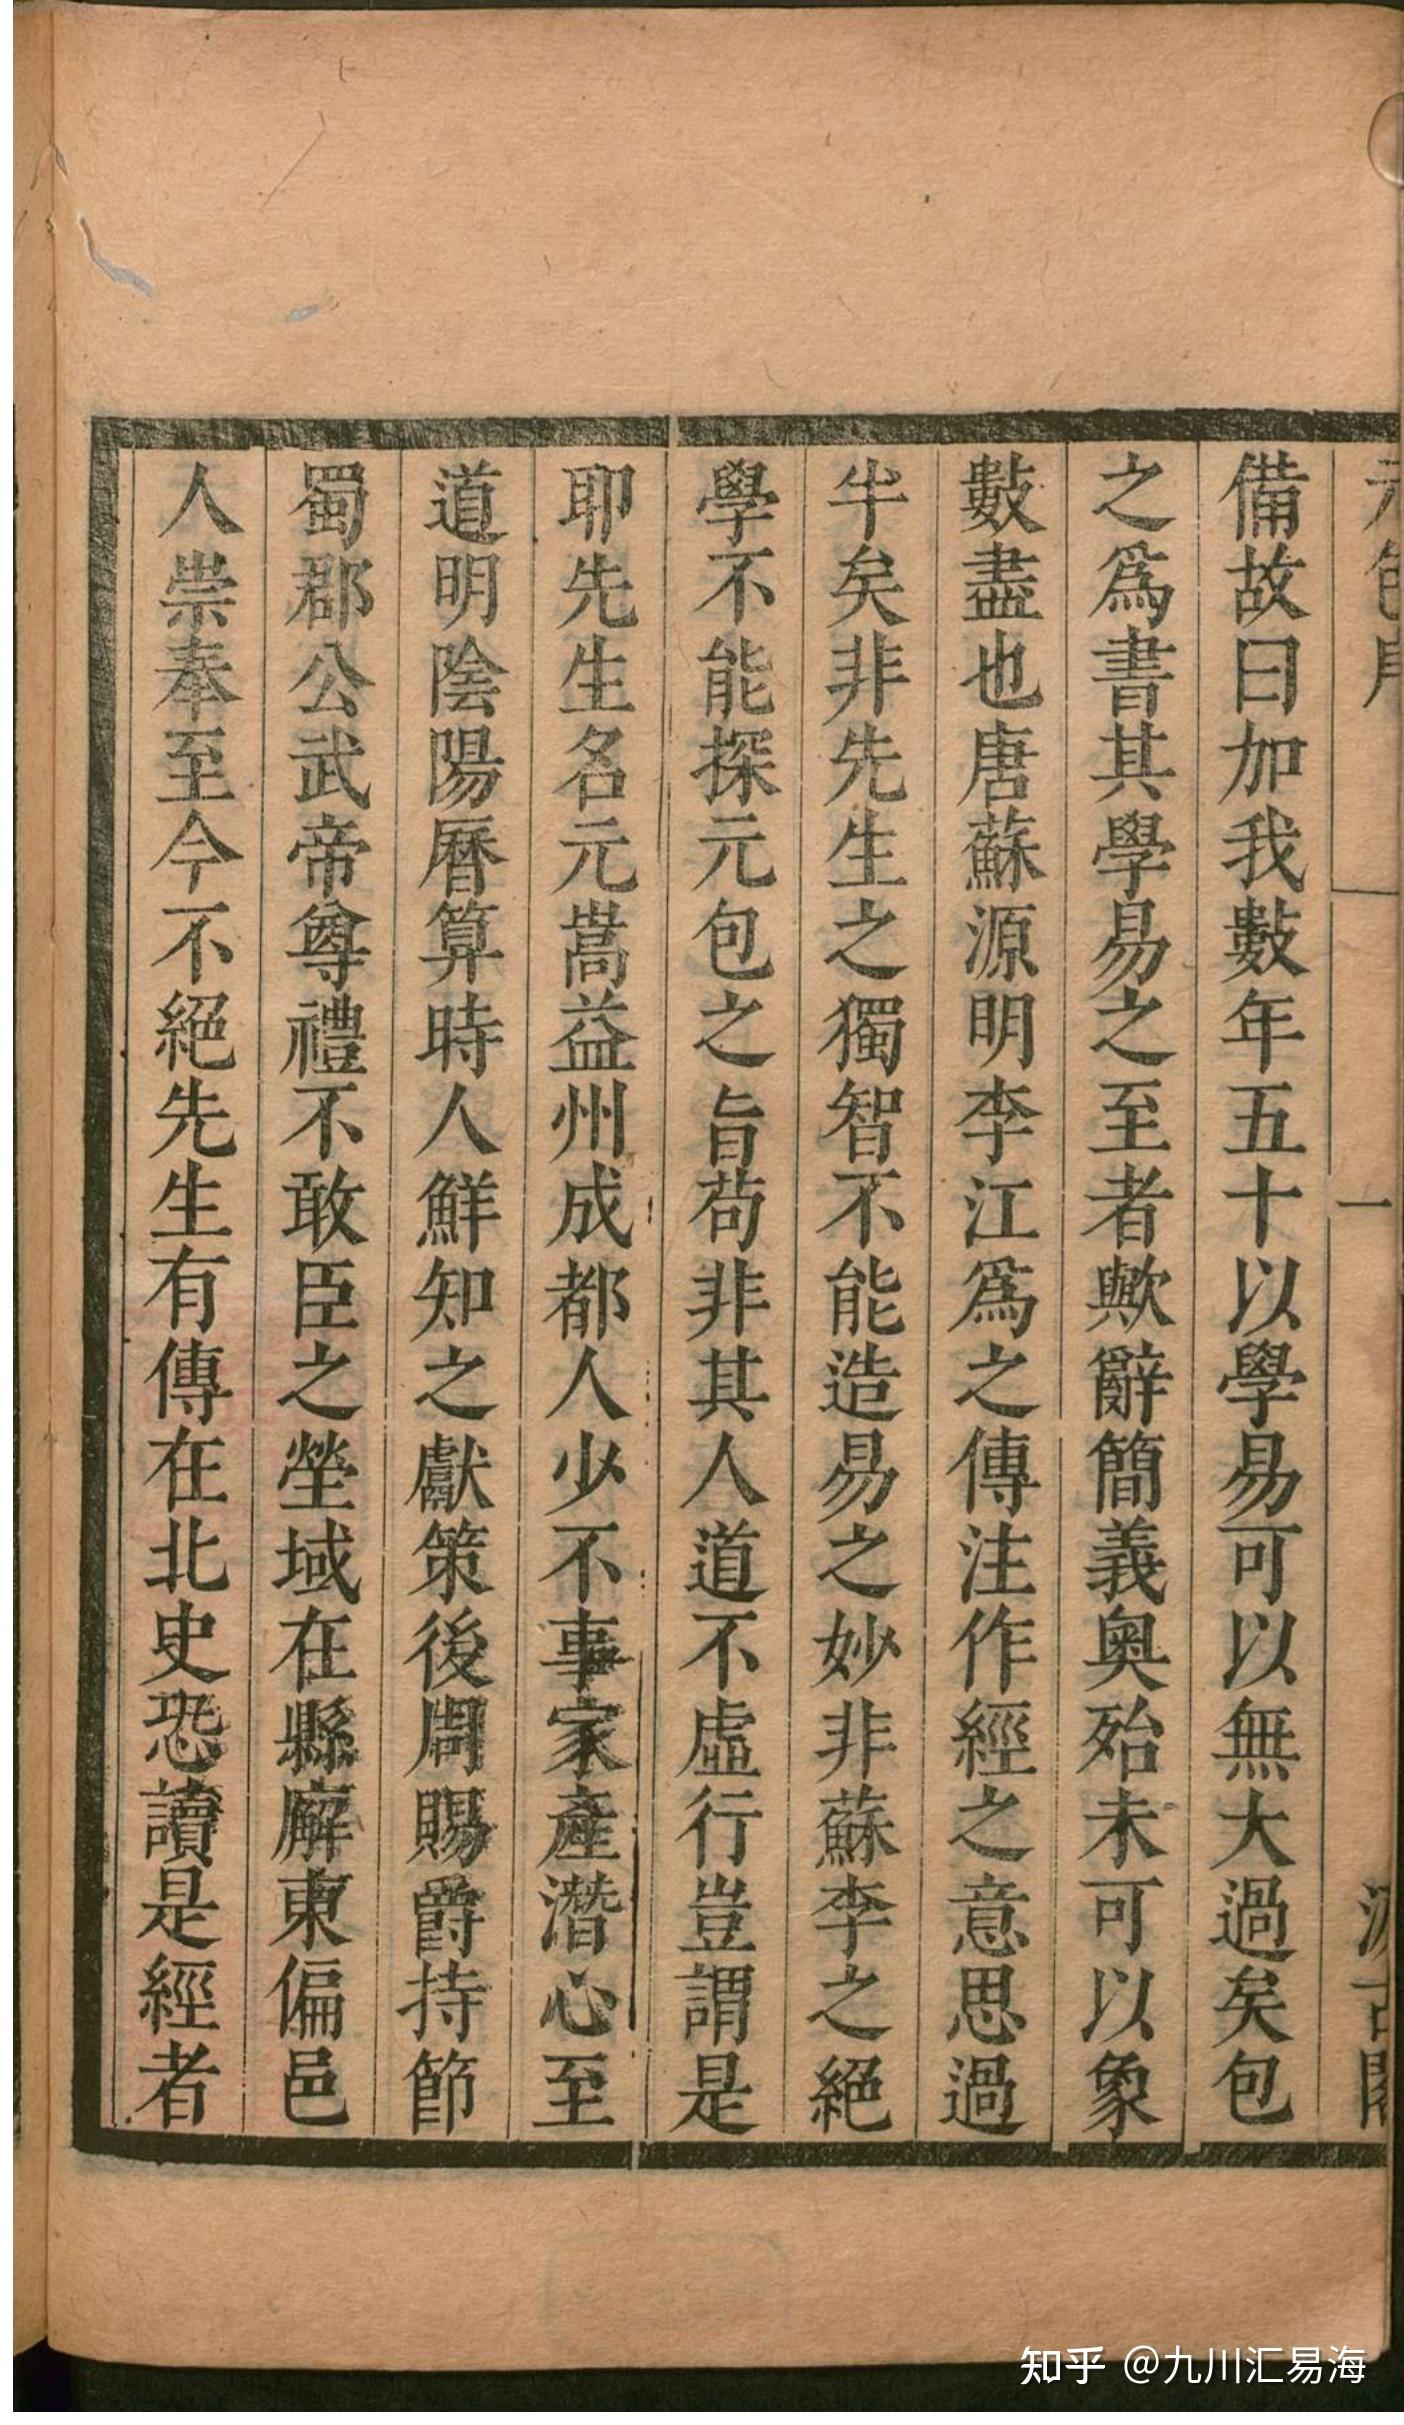 備故曰加我數年五十以學易可以無大過矣包
之爲書其學易之至者歟辭簡義奧殆未可以象
數盡也唐蘇源明李江爲之傳注作經之意思過
半矣非先生之獨智不能造易之妙非蘇李之絕
學不能探元包之旨苟非其人道不虛行豈謂是
耶先生名元嵩益州成都人少不事家產潛心至
道明陰陽曆算時人鮮知之獻策後周賜爵持節
蜀郡公武帝尊禮不敢臣之塋域在縣廨東偏邑
人崇奉至今不絕先生有傳在北史恐讀是經者
一
知乎 @九川汇易海